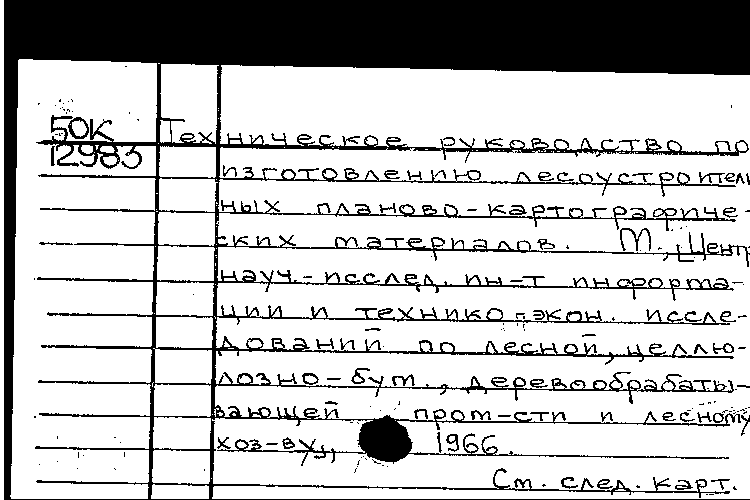 50К Техническое руководство по
12983 изготовлению лесоустроитель
ных планово-картографиче-
ских материалов. М., [Центр
науч-исслед. ин-т информа-
ции и технико-экон. иссле-
дований по лесной, целлю-
лозно-бум., деревообрабаты-
вающей пром-сти и лесному
хоз-ву], 1966.
См. след. карт.